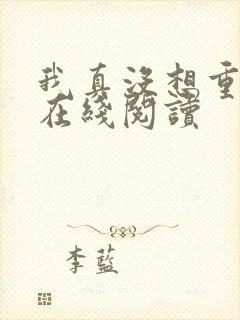 我真没想重
在綫閱讀
李藍